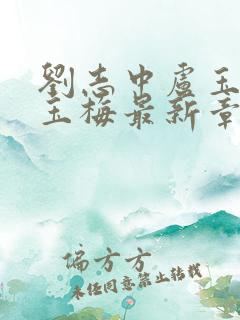 劉志中盧玉
玉梅最新章
偏方方
未经同意禁止转载